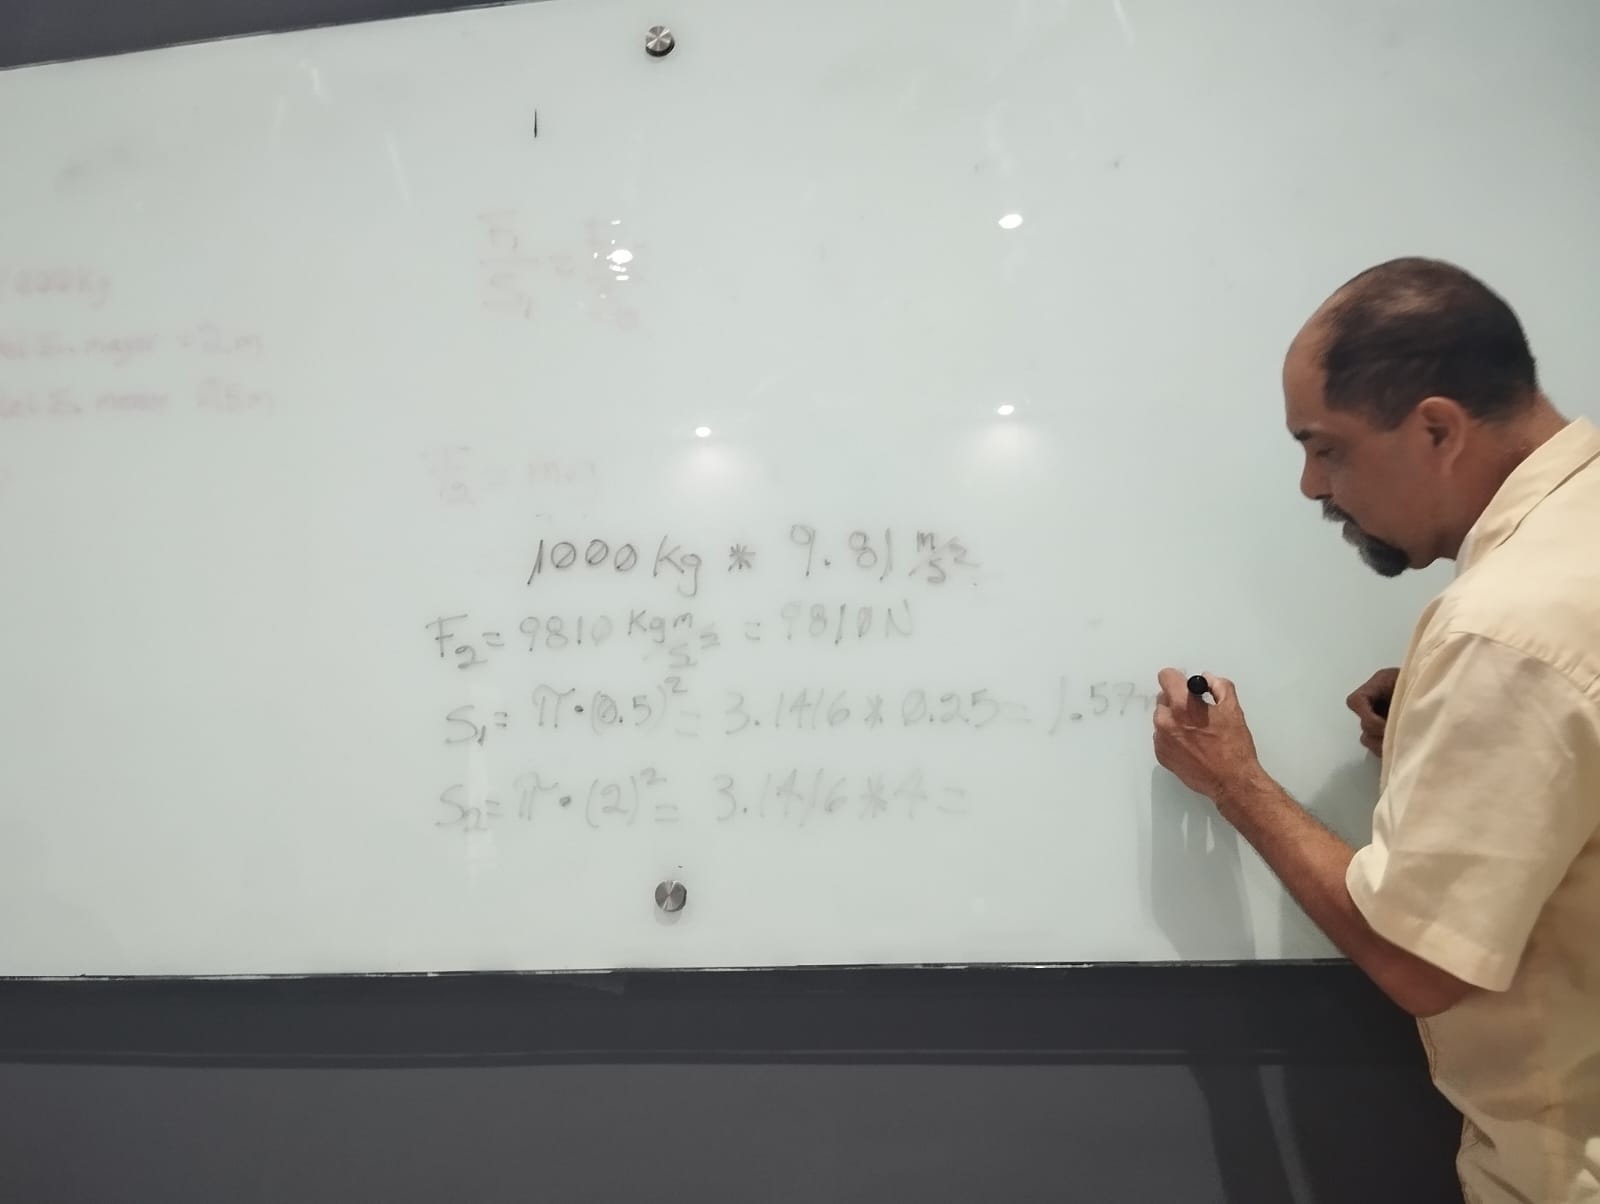 1000 kg
mayor = 2 m
F₁/S₁ = F₂/S₂
F₂ = m.g
1000 kg * 9.81 m/s²
F₂ = 9810 kg m/s² = 9810 N
S₁ = π·(0.5)² = 3.1416 * 0.25 = 1.57
S₂ = π·(2)² = 3.1416 * 4 =